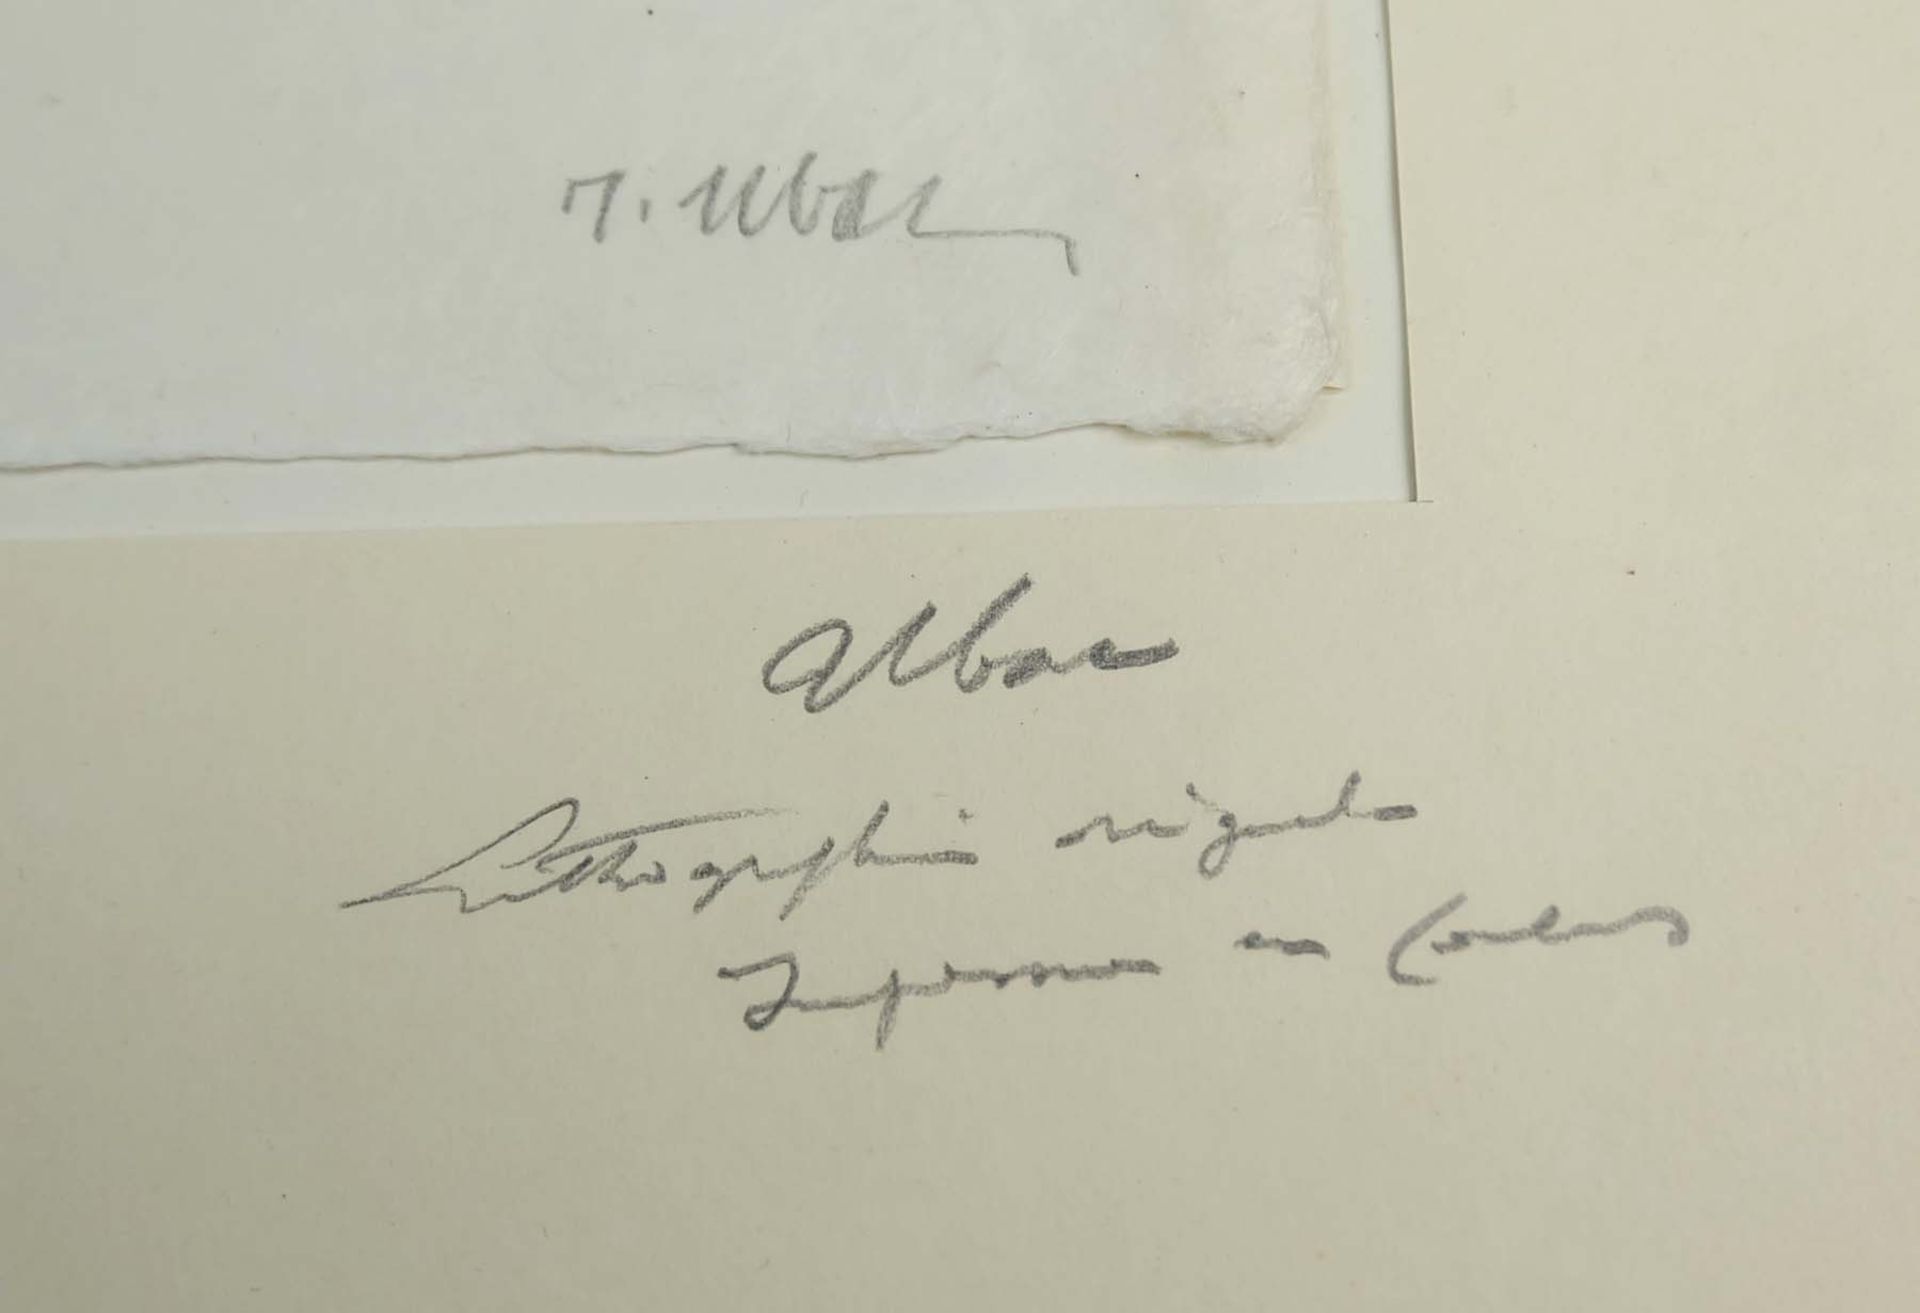 r. Ubac
Ubac
Lithographie originale
Impression en Couleurs